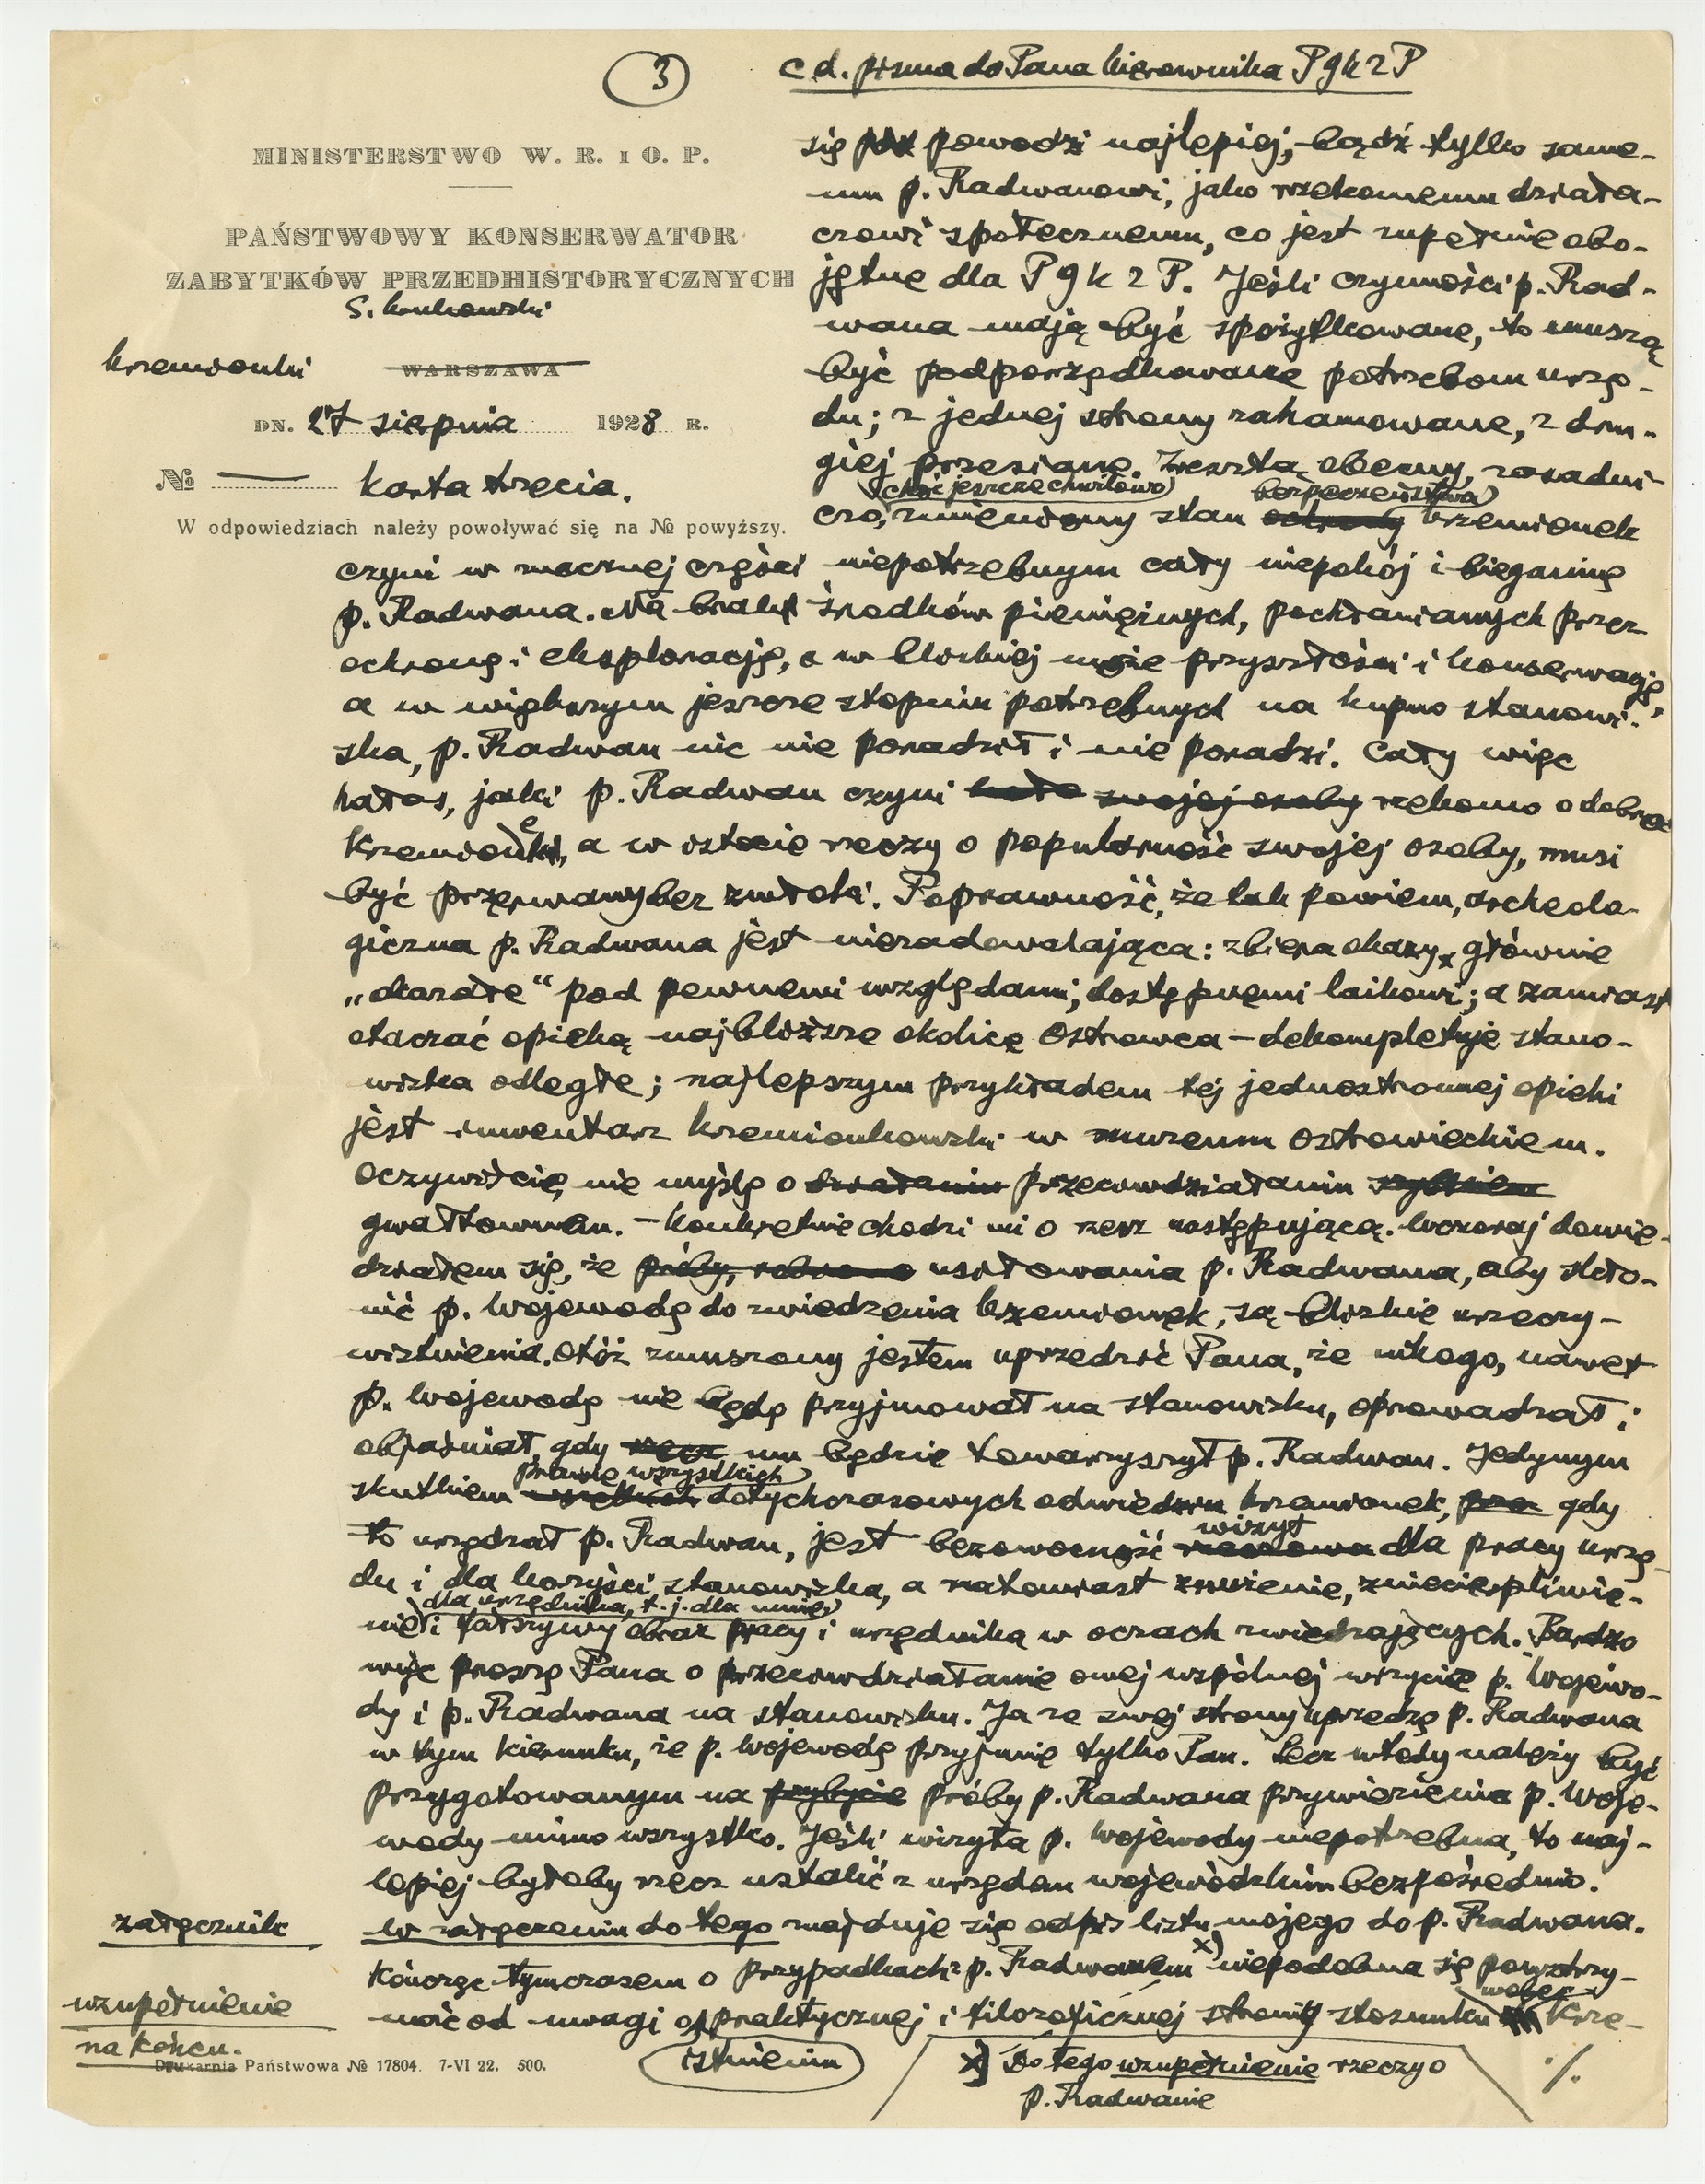 3
c d. pisma do Pana kierownika P g k z P
MINISTERSTWO W. R. I O. P.
PAŃSTWOWY KONSERWATOR
ZABYTKÓW PRZEDHISTORYCZNYCH
S. Krukowski
Krzemionki WARSZAWA
DN. 27 sierpnia 1928 R.
№ — karta trzecia.
W odpowiedziach należy powoływać się na № powyższy.
się powodzi najlepiej, bądź tylko same-
mu p. Radwanowi, jako rzekomemu działa-
czowi społecznemu, co jest zupełnie obo-
jętne dla P g k z P. Jeśli czynności p. Rad-
wana mają być spożytkowane, to muszą
być podporządkowane potrzebom urzę-
du; z jednej strony zahamowane, z dru-
giej przesiane. Zresztą obecny, zasadni-
(choć jeszcze chwilowo) bezpieczeństwa
czo, zmieniony stan ochrony krzemionek
czyni w znacznej części niepotrzebnym cały niepokój i bieganinę
p. Radwana. Na brak środków pieniężnych, pochłanianych przez
ochronę i eksplorację, a w bliskiej przyszłości i konserwację,
a w większym jeszcze stopniu potrzebnych na kupno stanowi-
ska, p. Radwan nic nie poradził i nie poradzi. Cały więc
hałas, jaki p. Radwan czyni swojej osoby rzekomo o dobro
Krzemionek, a w istocie rzeczy o popularność swojej osoby, musi
być przerwany bez zwłoki. Poprawność, że tak powiem, archeolo-
giczna p. Radwana jest niezadowalająca: zbiera okazy, głównie
„okazałe" pod pewnemi względami, dostępnemi laikowi; a zamiast
otaczać opieką najbliższe okolice Ostrowca – dekompletuje stano-
wiska odległe; najlepszym przykładem tej jednostronnej opieki
jest inwentarz krzemionkowski w muzeum ostrowieckiem.
Oczywiście, nie myślę o działaniu przeciwdziałaniu szybkiem
gwałtownem. – Konkretnie chodzi mi o rzecz następującą. Wczoraj dowie-
działem się, że próby, usiłowania p. Radwana, aby skło-
nić p. Wojewodę do zwiedzenia krzemionek, są bliskie urzeczy-
wistnienia. Otóż zmuszony jestem uprzedzić Pana, że nikogo, nawet
p. Wojewodę nie będę przyjmował na stanowisku, oprowadzał i
objaśniał, gdy mu będzie towarzyszył p. Radwan. Jedynym
prawie wszystkich
skutkiem wszystkich dotychczasowych odwiedzin krzemionek, gdy
wizyt
to urządzał p. Radwan, jest bezowocność dla pracy urzę-
du i dla korzyści stanowiska, a natomiast znużenie, zniecierpliwie-
dla urzędnika, t. j. dla mnie,
nie i fałszywy obraz pracy i urzędnika w oczach zwiedzających. Bardzo
więc proszę Pana o przeciwdziałanie owej wspólnej wizycie p. Wojewo-
dy i p. Radwana na stanowisku. Ja ze swej strony uprzedzę p. Radwana
w tym kierunku, że p. Wojewodę przyjmie tylko Pan. Lecz wtedy należy być
przygotowanym na przybycie próby p. Radwana przywiezienia p. Woje-
wody mimo wszystko. Jeśli wizyta p. Wojewody niepotrzebna, to naj-
lepiej byłoby rzecz ustalić z urzędem wojewódzkim bezpośrednio.
załącznik
W załączeniu do tego znajduje się odpis listu mojego do p. Radwana.
Kończąc tymczasem o przypadkach z p. Radwanem x) niepodobna się powstrzy-
wobec
uzupełnienie
mać od uwagi o praktycznej i filozoficznej stronie stosunku Krze-
na końcu.
istnieniu
x) Do tego uzupełnienie rzeczy o
p. Radwanie
./.
Drukarnia Państwowa № 17804. 7-VI 22. 500.